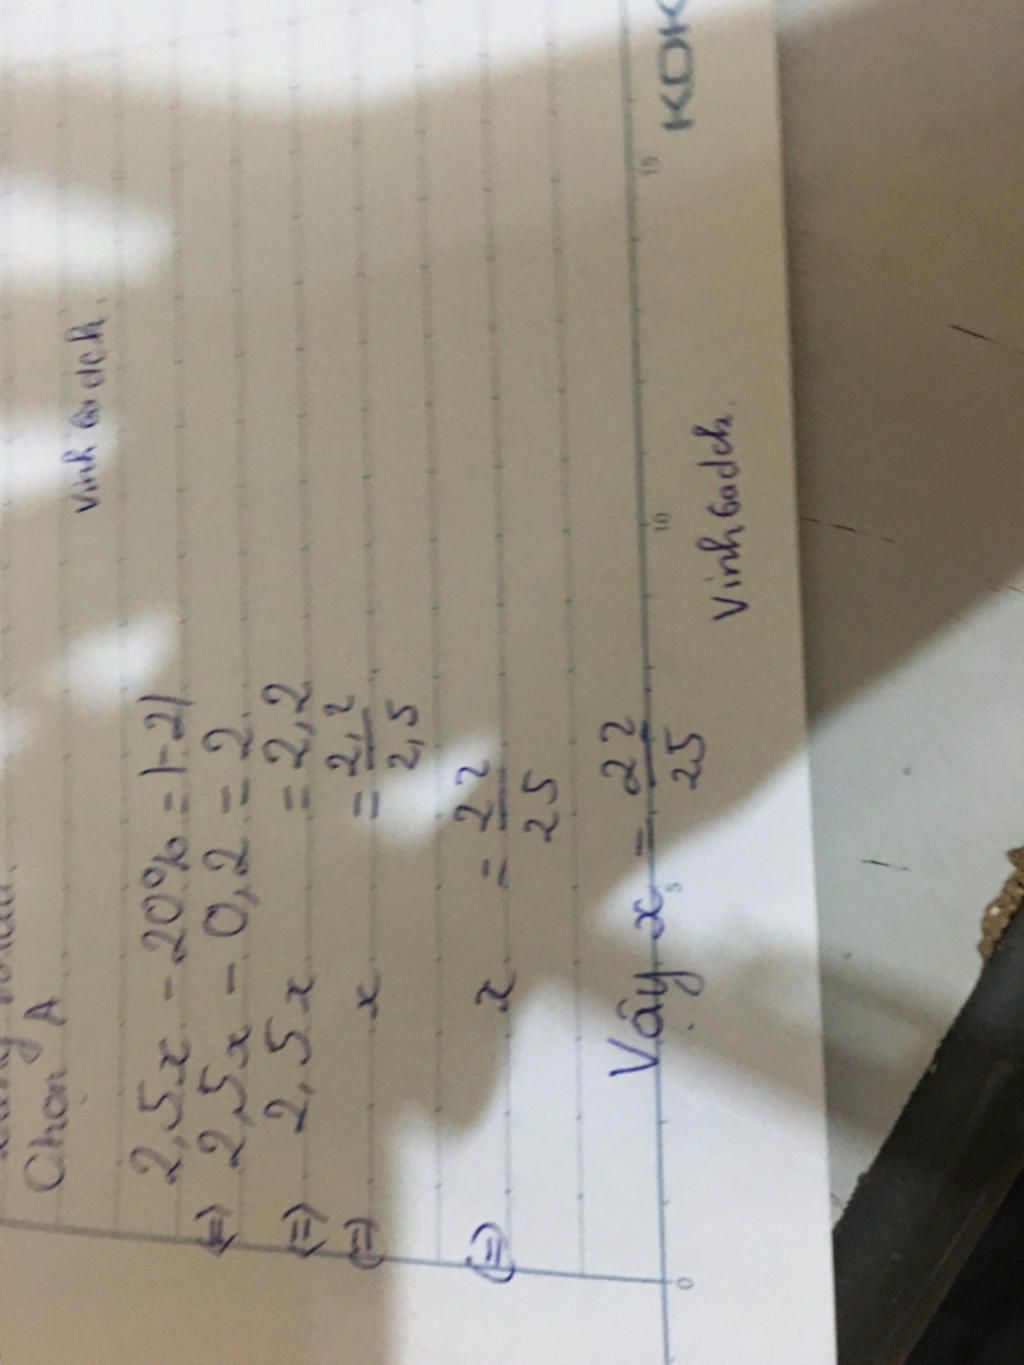 Chọn A
Vinh Gadch.
2,5x - 20% = |-2|
(=) 2,5x - 0,2 = 2
(=) 2,5x = 2,2
(=) x = 2,2 / 2,5
(=) x = 22 / 25
Vậy x = 22 / 25
0 5 10 15
Vinh Gadch.
KOK